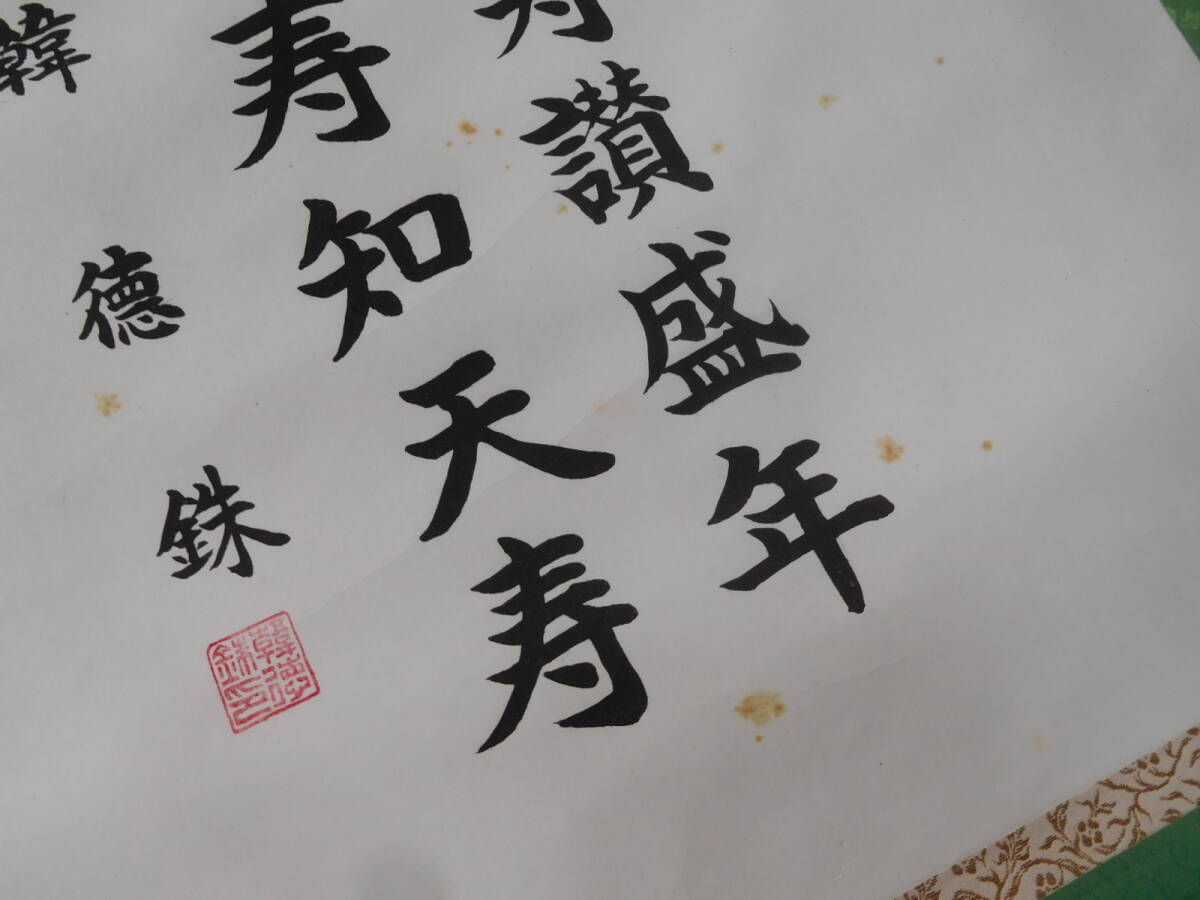 寿讃盛年
寿知天寿
韓德銖
韓德銖印